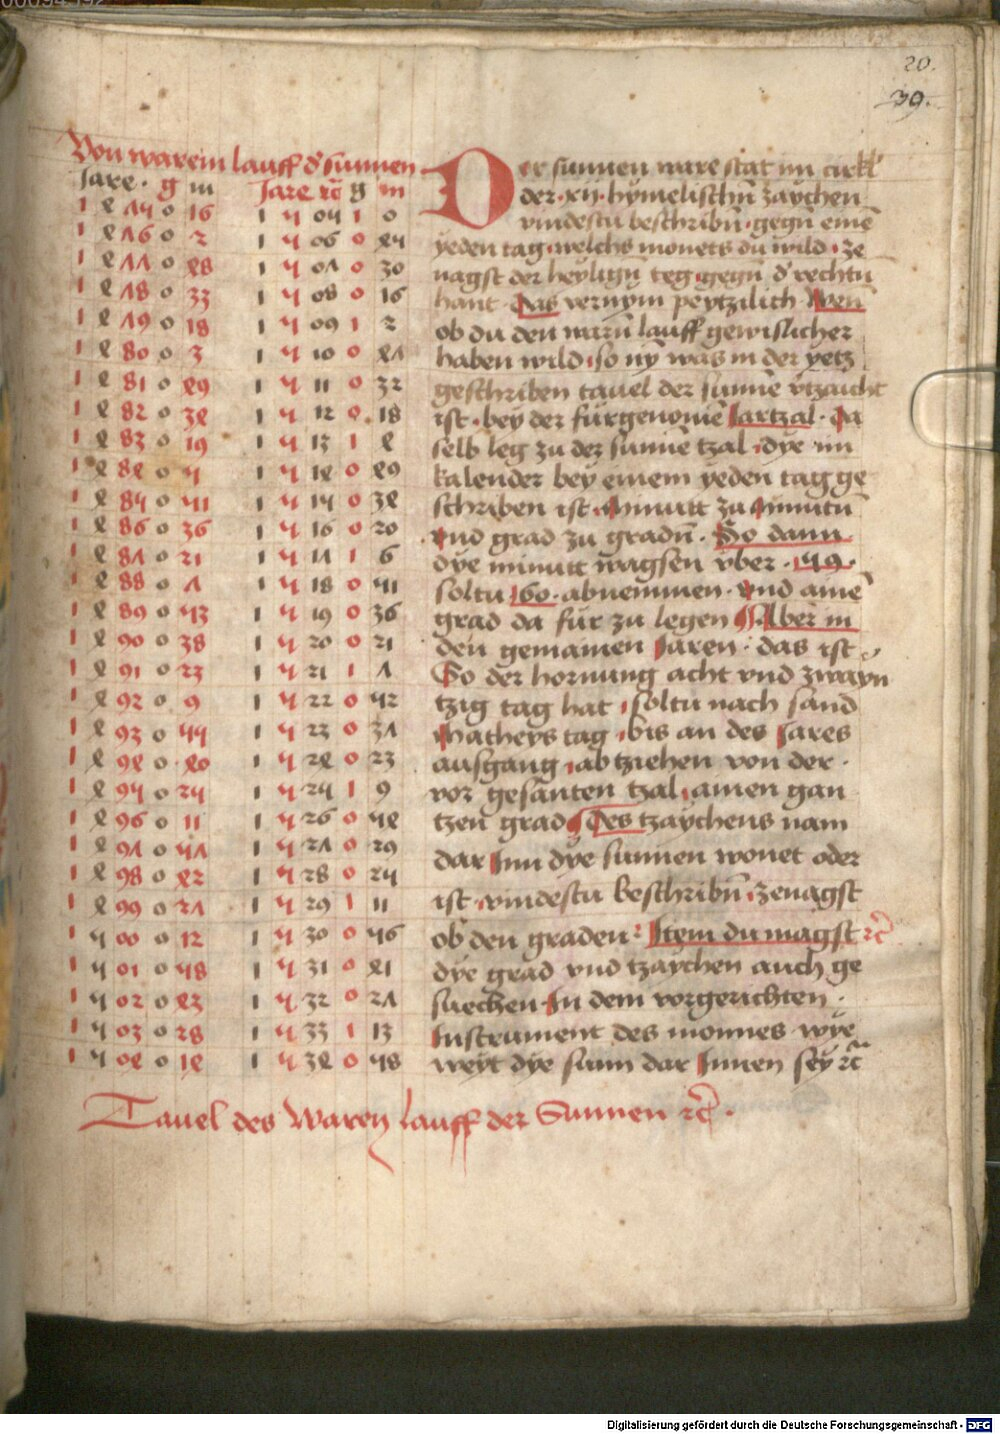 20.
39.
Von warem lauff d' sunnen
Jare · g m Jare rc̄ g m
1 4 75 0 16 1 5 05 1 0
1 4 76 0 2 1 5 06 0 45
1 4 77 0 48 1 5 07 0 30
1 4 78 0 33 1 5 08 0 16
1 4 79 0 18 1 5 09 1 2
1 4 80 0 3 1 5 10 0 47
1 4 81 0 49 1 5 11 0 32
1 4 82 0 34 1 5 12 0 18
1 4 83 0 19 1 5 13 1 4
1 4 84 0 5 1 5 14 0 49
1 4 85 0 51 1 5 15 0 34
1 4 86 0 36 1 5 16 0 20
1 4 87 0 21 1 5 17 1 6
1 4 88 0 7 1 5 18 0 51
1 4 89 0 53 1 5 19 0 36
1 4 90 0 38 1 5 20 0 21
1 4 91 0 23 1 5 21 1 7
1 4 92 0 9 1 5 22 0 52
1 4 93 0 55 1 5 23 0 37
1 4 94 0 40 1 5 24 0 23
1 4 95 0 25 1 5 25 1 9
1 4 96 0 11 1 5 26 0 54
1 4 97 0 57 1 5 27 0 29
1 4 98 0 42 1 5 28 0 25
1 4 99 0 27 1 5 29 1 11
1 5 00 0 12 1 5 30 0 56
1 5 01 0 58 1 5 31 0 41
1 5 02 0 43 1 5 32 0 27
1 5 03 0 28 1 5 33 1 13
1 5 04 0 14 1 5 34 0 58
Der sunnen ware stat im cirkl'
der · xij · hymelischn̄ zaychen
vindestu beschribn̄ · gegn̄ einē
yeden tag · welchs monets du wild · ze
nagst der heylign̄ teg · gegn̄ d' rechtn̄
hant · Das vernym peytzilich Wen̄
ob du den warn̄ lauff gewislicher
haben wild · so ny̅ was in der yetz
geschriben tauel der sunnē vtzaicht
ist · bey der fürgenomē Jartzal · Da
selb leg zu der sunnē tzal · dye im
kalender bey einem yeden tag ge
schriben ist · Minutt zu Minutn̄
vnd grad zu gradn̄ · So dann
dye minutt wagsen vber · 59 ·
soltu 60 · abnemmen · vnd ainē
grad da für zu legen ¶ Aber in
den gemainen Jaren · das ist
So der hornung acht vnd zwayn
tzig tag hat · soltu nach sand
Matheys tag · bis an des Jares
ausgang · abtziehen von der ·
vor gesanten tzal · ainen gan
tzen grad ¶ Des tzaychens nam
dar Inn dye sunnen wonet oder
ist · vindestu beschribn̄ · zenagst
ob den graden · Item du magst rc̄
dye grad vnd tzaychen auch ge
suechen · In dem vorgerichten ·
Instrument des monnes · wye
weyt dye sunn dar Innen sey rc̄
Tauel des Waren lauff der Sunnen rc̄ ·
Digitalisierung gefördert durch die Deutsche Forschungsgemeinschaft - DFG